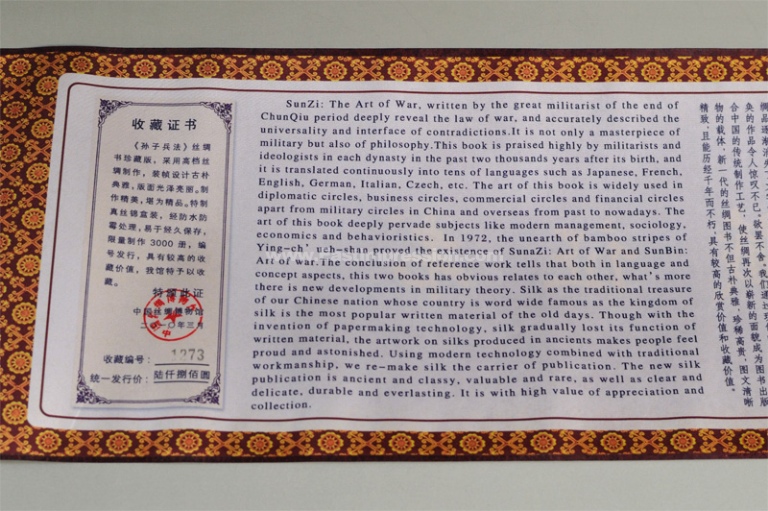 收藏证书
《孙子兵法》丝绸
书珍藏版，采用高档丝
绸制作，装帧设计古朴
典雅，版面光泽亮丽，制
作精美，堪为精品。特制
真丝锦盒装，轻防水防
霉处理，易于经久保存，
限量制作 3000 册，编
号发行，具有较高的收
藏价值，我馆特予以收
藏。
特颁此证
中国丝绸博物馆
二〇一〇年三月
收藏编号：1273
统一发行价：陆仟捌佰圆
SunZi: The Art of War, written by the great militarist of the end of
ChunQiu period deeply reveal the law of war, and accurately described the
universality and interface of contradictions.It is not only a masterpiece of
military but also of philosophy.This book is praised highly by militarists and
ideologists in each dynasty in the past two thousands years after its birth, and
it is translated continuously into tens of languages such as Japanese, French,
English, German, Italian, Czech, etc. The art of this book is widely used in
diplomatic circles, business circles, commercial circles and financial circles
apart from military circles in China and overseas from past to nowadays. The
art of this book deeply pervade subjects like modern management, sociology,
economics and behavioristics. In 1972, the unearth of bamboo stripes of
Ying-ch' ueh-shan proved the existence of SunaZi: Art of War and SunBin:
Art of war.The conclusion of reference work tells that both in language and
concept aspects, this two books has obvious relates to each other, what's more
there is new developments in military theory. Silk as the traditional treasure
of our Chinese nation whose country is word wide famous as the kingdom of
silk is the most popular written material of the old days. Though with the
invention of papermaking technology, silk gradually lost its function of
written material, the artwork on silks produced in ancients makes people feel
proud and astonished. Using modern technology combined with traditional
workmanship, we re-make silk the carrier of publication. The new silk
publication is ancient and classy, valuable and rare, as well as clear and
delicate, durable and everlasting. It is with high value of appreciation and
collection.
绸品逐渐消失
奂的作品令人惊叹不已，欲罢不舍。我们通过现
合中国的传统制作工艺，使丝绸再次以崭新的面貌成为图书出版
物的载体，新一代的丝绸图书不但古朴典雅、珍稀高贵，图文清晰
精致，且能历经千年而不朽，具有较高的欣赏价值和收藏价值。